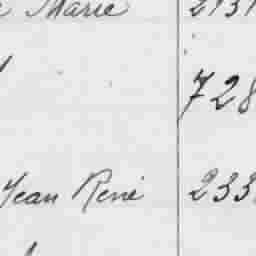 Marie 2131
728
Jean René 233